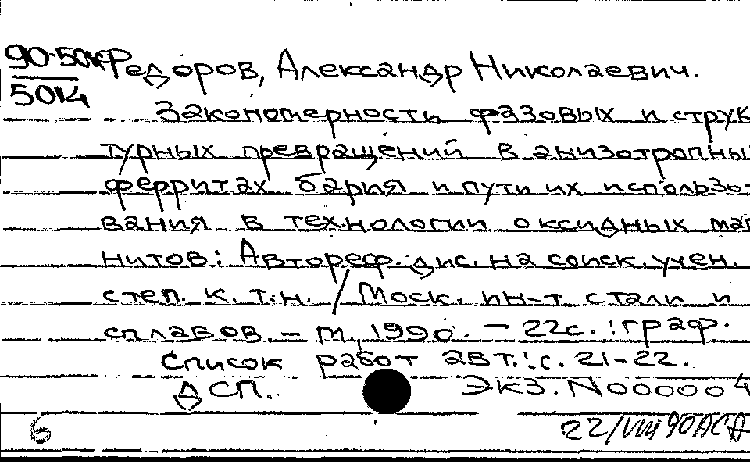 90-50к Федоров, Александр Николаевич.
5014
Закономерность фазовых и струк
турных превращений в анизотропны
ферритах бария и пути их использо-
вания в технологии оксидных маг
нитов: Автореф. дис. на соиск. учен.
степ. к.т.н. / Моск. ин-т стали и
сплавов. – М, 1990. – 22с.: граф.
Список работ авт.: с. 21-22.
ДСП. Экз. N000004
6 22/VIII 90